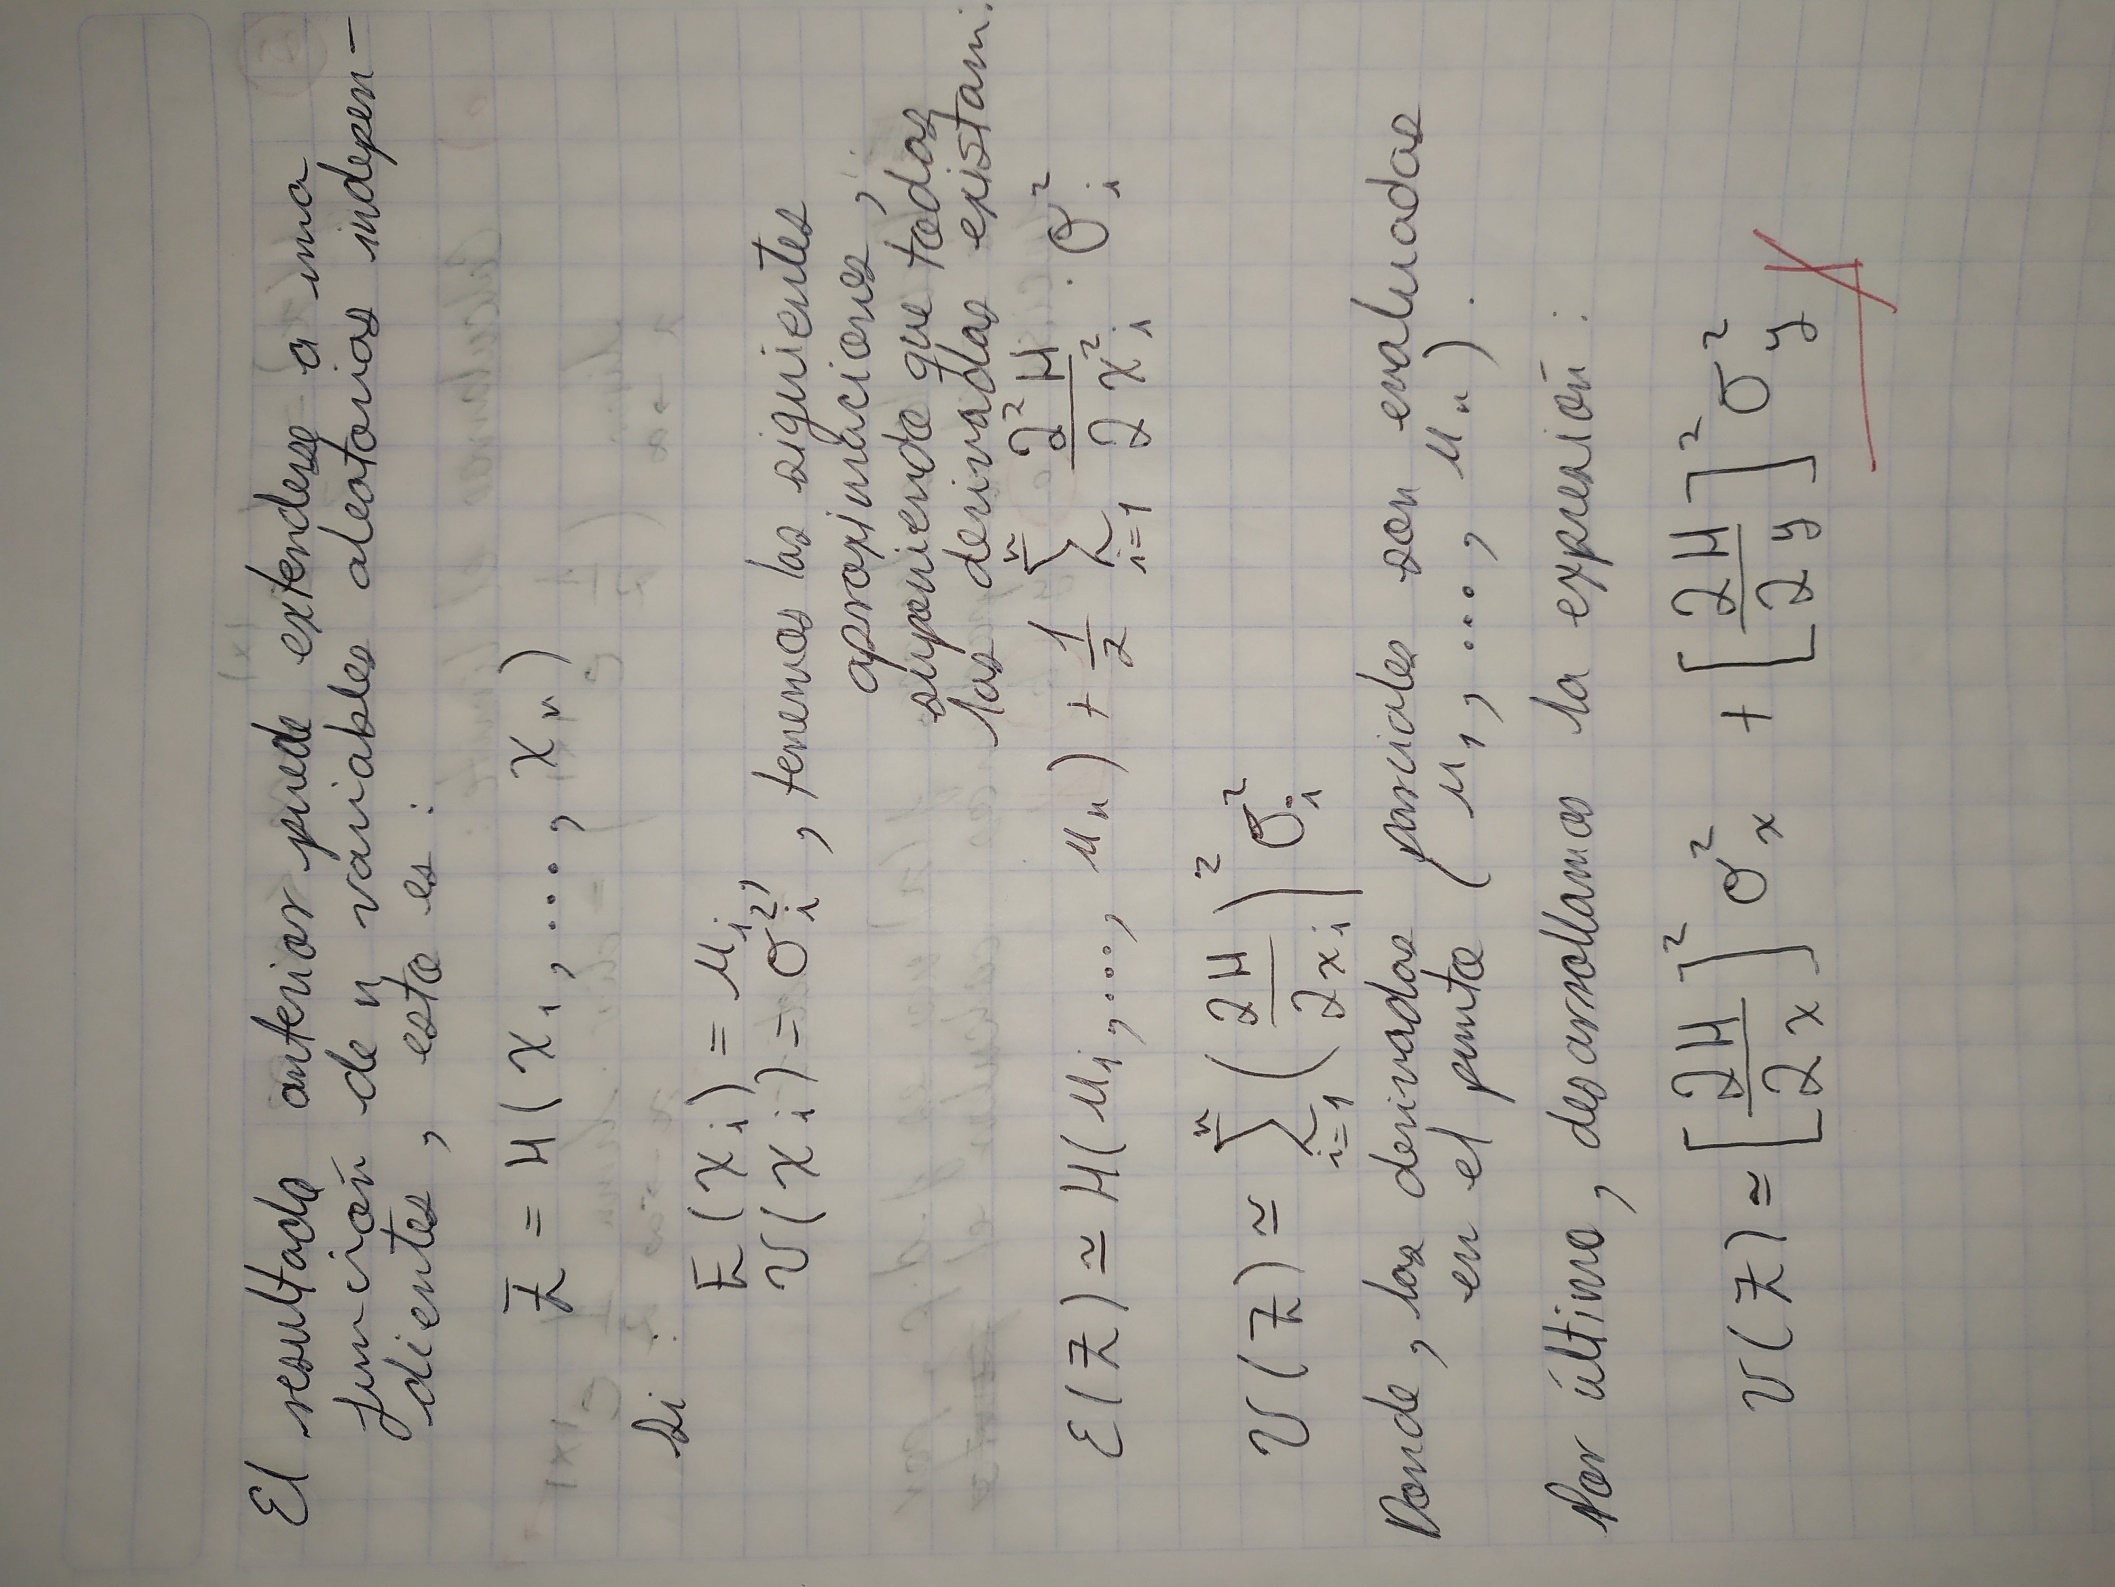 El resultado anterior puede extenderse a una
función de n variables aleatorias indepen-
dientes, esto es:
Z = H(x₁, ..., xₙ)
Si
E(xᵢ) = μᵢ,
V(xᵢ) = σᵢ², tenemos las siguientes
aproximaciones,
suponiendo que todas
las derivadas existan:
E(Z) ≃ H(μ₁, ..., μₙ) + 1/2 ∑ᵢ₌₁ⁿ ∂²H/∂xᵢ² · σᵢ²
V(Z) ≃ ∑ᵢ₌₁ⁿ (∂H/∂xᵢ)² σᵢ²
Donde, las derivadas parciales son evaluadas
en el punto (μ₁, ..., μₙ).
Por último, desarrollamos la expresión:
V(Z) ≃ [∂H/∂x]² σₓ² + [∂H/∂y]² σ_y²